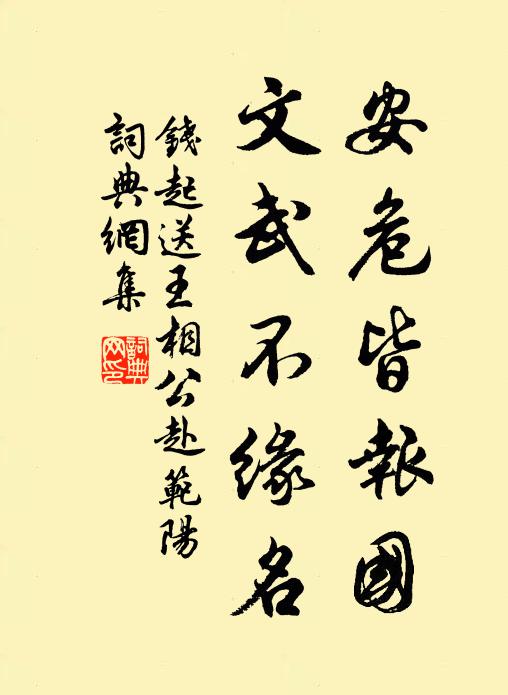 安危皆報國
文武不緣名
錢起送王相公赴範陽
詞典網集
詞典網印